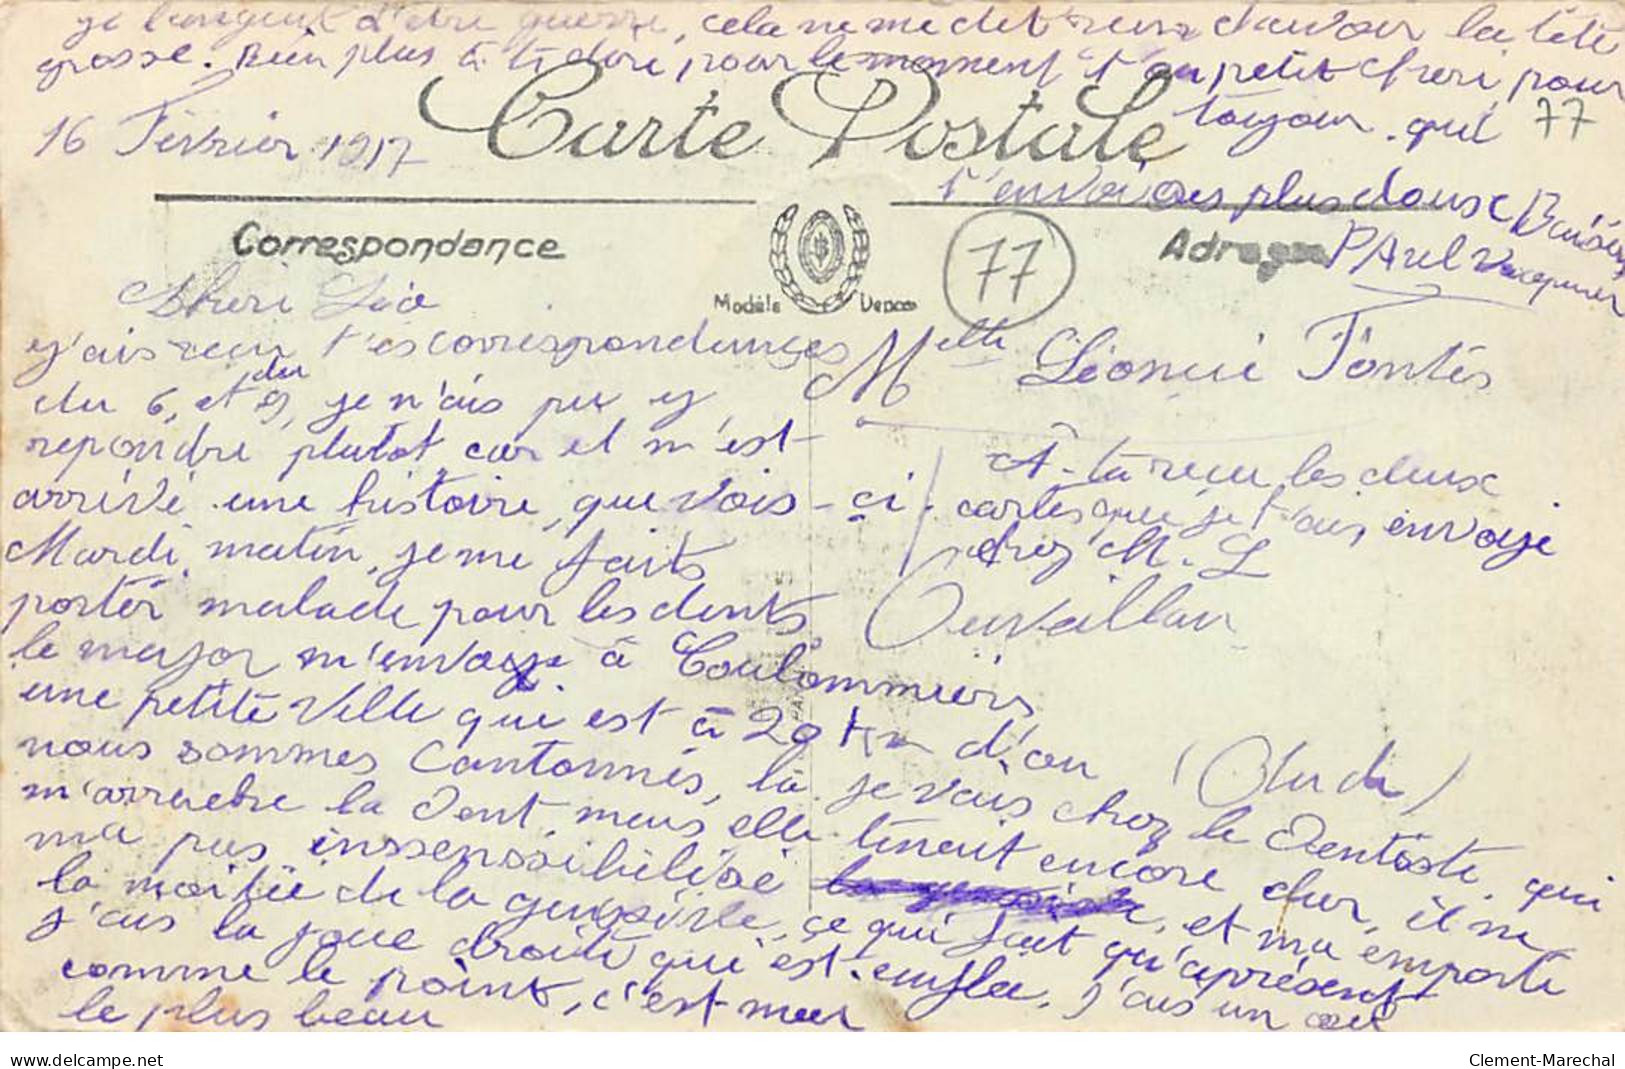 je languent d'etre guerri, cela ne me dit rien d'avoir la tête
grosse. Rien plus à te dire pour le moment t'on petit cheri pour
toujour. qui 77
16 Fevrier 1917
Carte Postale
t'envoi ses plus doux Baisers
PAul
Correspondance
77
Adresse
Modèle Depose
Cheri Léo
y'ais recu t'es correspondances
du 6, et du 9, je n'ais pu y
repondre plutot car il m'est
arrivé une histoire, que vois-ci.
Mardi matin, je me fait
porter malade pour les dents
le major m'envoye à Coulommiers
une petite Ville qui est à 20 Km d'ou
nous sommes Cantonnés, la je vais chez le Dentiste, qui
m'arrache la Dent, mais elle tenait encore dur, il ne
ma pas inssenssibilisé, et ma emporte
la moitiée de la gensive, ce qui fait qu'aprésent
j'ais la joue droite qui est enflée, j'ais un œil
comme le point, c'est mon
le plus beau
Melle Léonie Fontès
A-tu recu les deux
cartes que je t'ais envoyé
chez M. L
Ouveillan
(Aude)
delcampe.net
Clement-Marechal